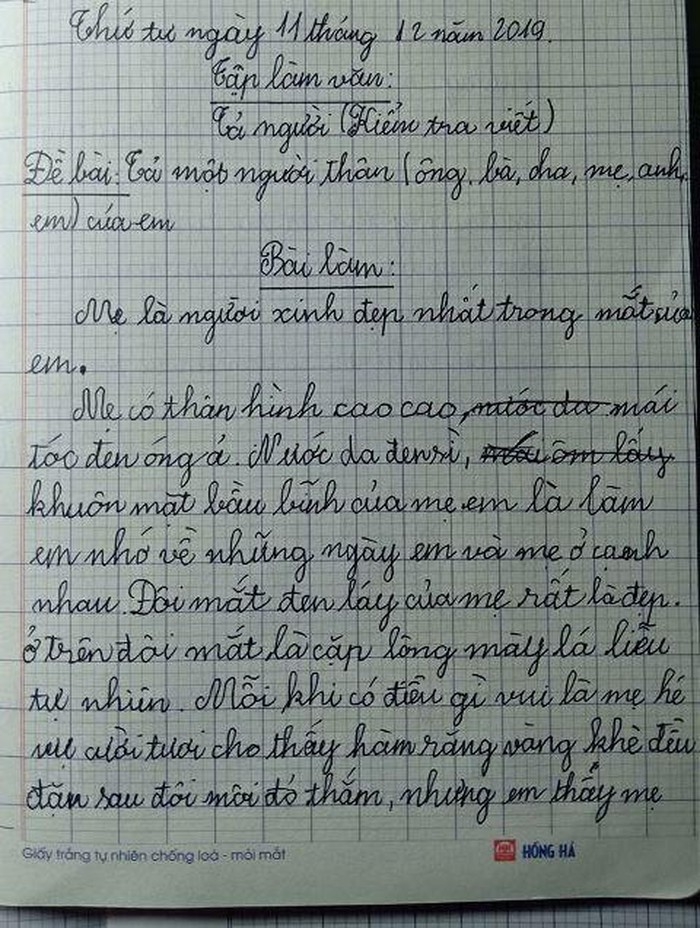 Thứ tư ngày 11 tháng 12 năm 2019.
Tập làm văn:
Tả người (Kiểm tra viết)
Đề bài: Tả một người thân (ông, bà, cha, mẹ, anh,
em) của em
Bài làm:
Mẹ là người xinh đẹp nhất trong mắt của
em.
Mẹ có thân hình cao cao, nước da mái
tóc đen óng ả. Nước da đen sì, mái ôm lấy
khuôn mặt bầu bĩnh của mẹ em là làm
em nhớ về những ngày em và mẹ ở cạnh
nhau. Đôi mắt đen láy của mẹ rất là đẹp.
ở trên đôi mắt là cặp lông mày lá liễu
tự nhiên. Mỗi khi có điều gì vui là mẹ hé
nụ cười tươi cho thấy hàm răng vàng khè đều
đặn sau đôi môi đỏ thắm, nhưng em thấy mẹ
Giấy trắng tự nhiên chống loá - mỏi mắt
HỒNG HÀ